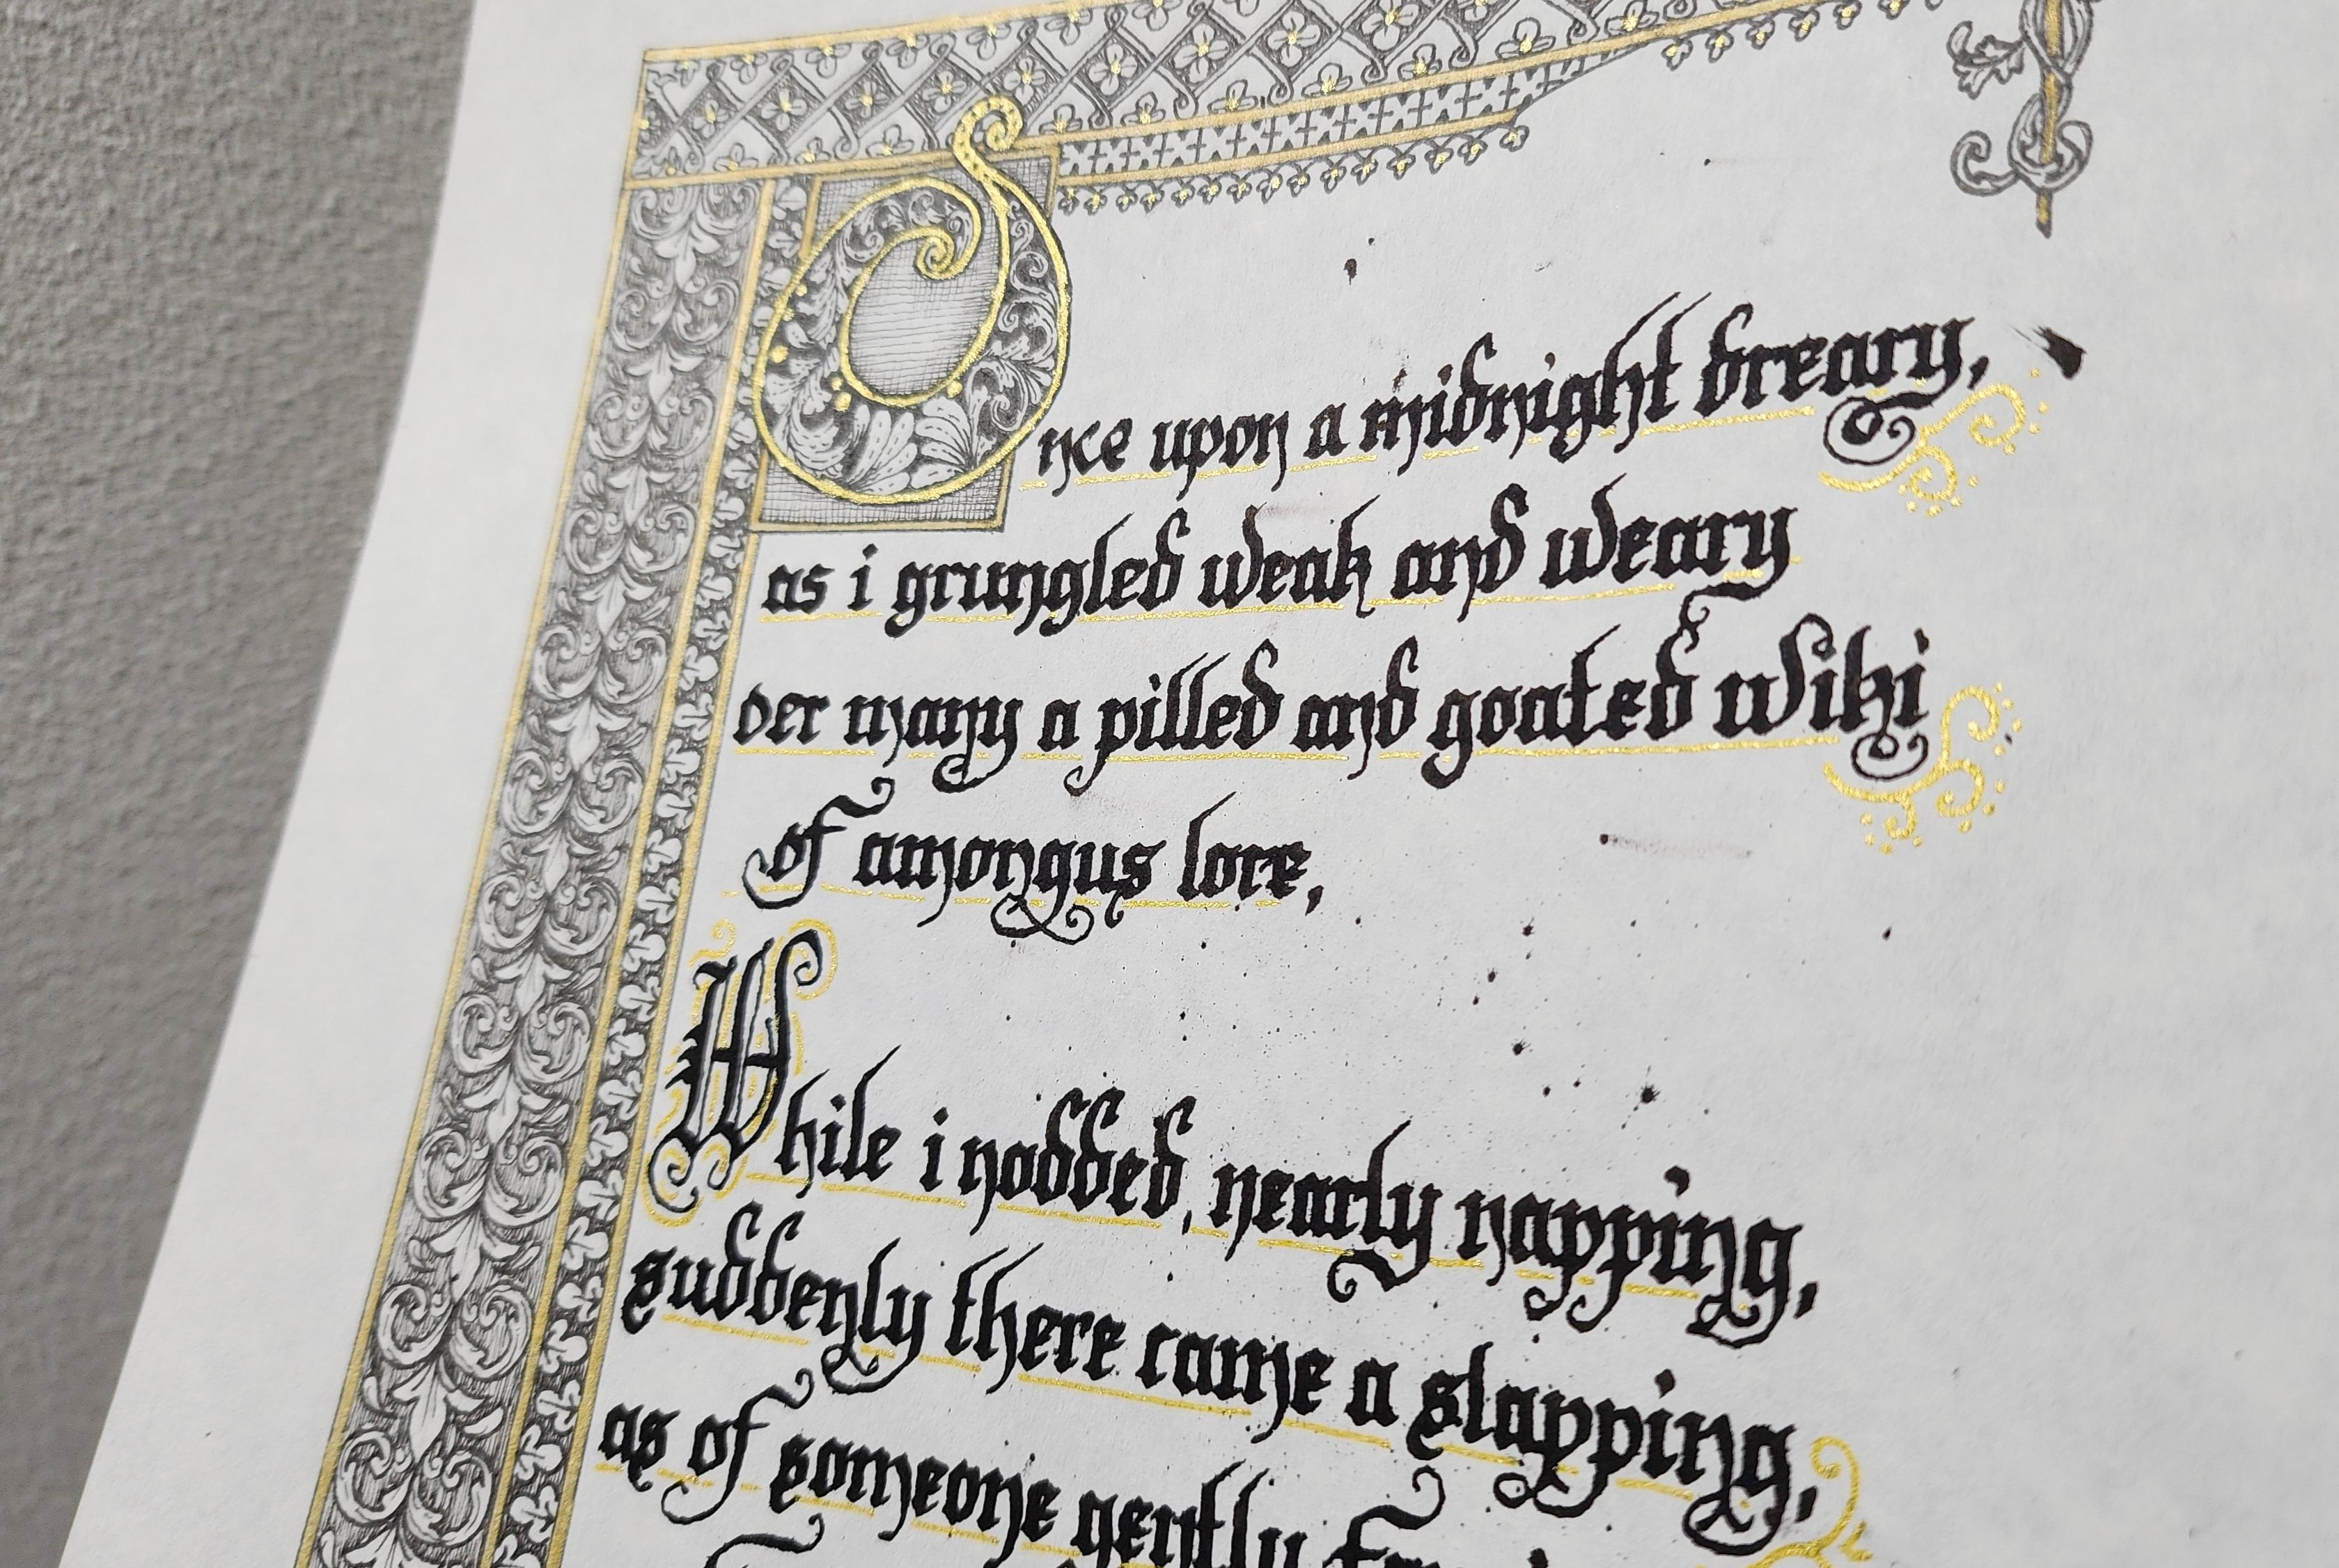 Once upon a midnight dreary,
as i grungled weak and weary
over many a pilled and goated wiki
of amongus lore,
While i nodded, nearly napping,
suddenly there came a slapping,
as of someone gently